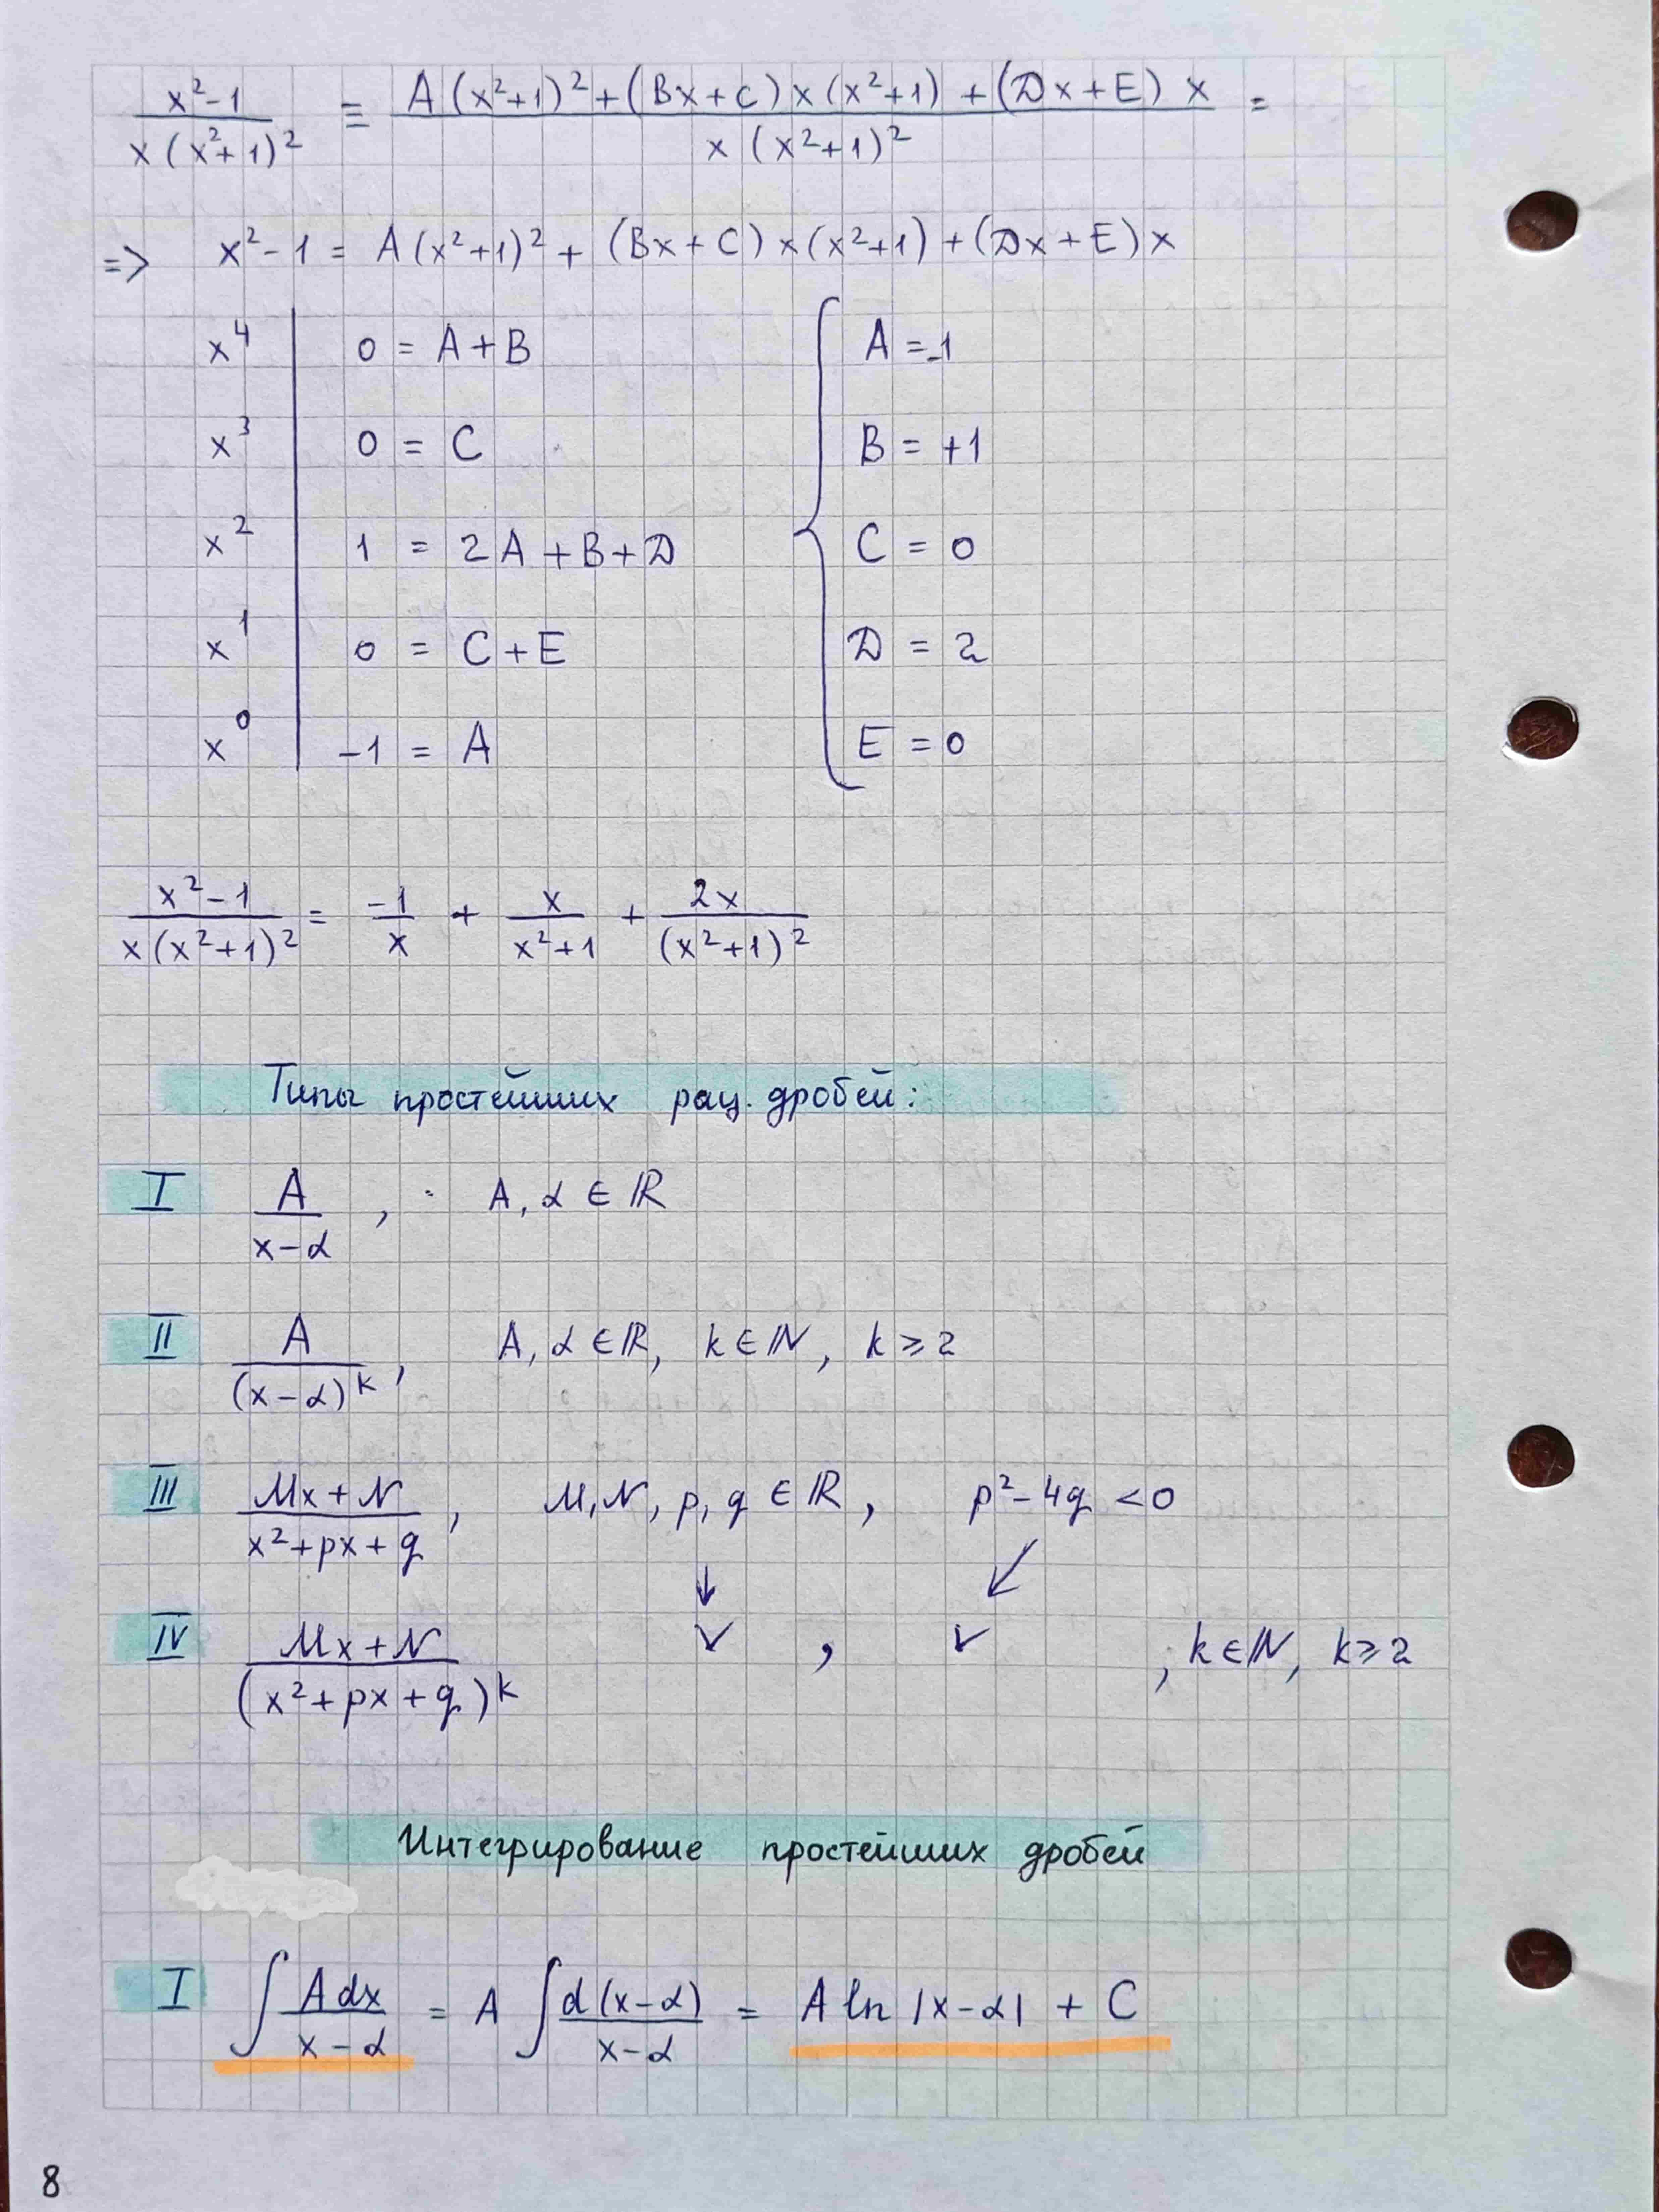 x²-1 / x(x²+1)² = A(x²+1)² + (Bx+C)x(x²+1) + (Dx+E)x / x(x²+1)² =
=> x²-1 = A(x²+1)² + (Bx+C)x(x²+1) + (Dx+E)x
x⁴ | 0 = A+B { A = -1
x³ | 0 = C B = +1
x² | 1 = 2A+B+D C = 0
x¹ | 0 = C+E D = 2
x⁰ | -1 = A E = 0
x²-1 / x(x²+1)² = -1/x + x/x²+1 + 2x/(x²+1)²
Типы простейших рац. дробей:
I A / x-α , A, α ∈ ℝ
II A / (x-α)ᵏ , A, α ∈ ℝ, k ∈ ℕ, k ⩾ 2
III Mx+N / x²+px+q , M, N, p, q ∈ ℝ, p²-4q < 0
↓ ↙
IV Mx+N / (x²+px+q)ᵏ ✓ , ✓ , k ∈ ℕ, k ⩾ 2
Интегрирование простейших дробей
I ∫ A dx / x-α = A ∫ d(x-α) / x-α = A ln |x-α| + C
8